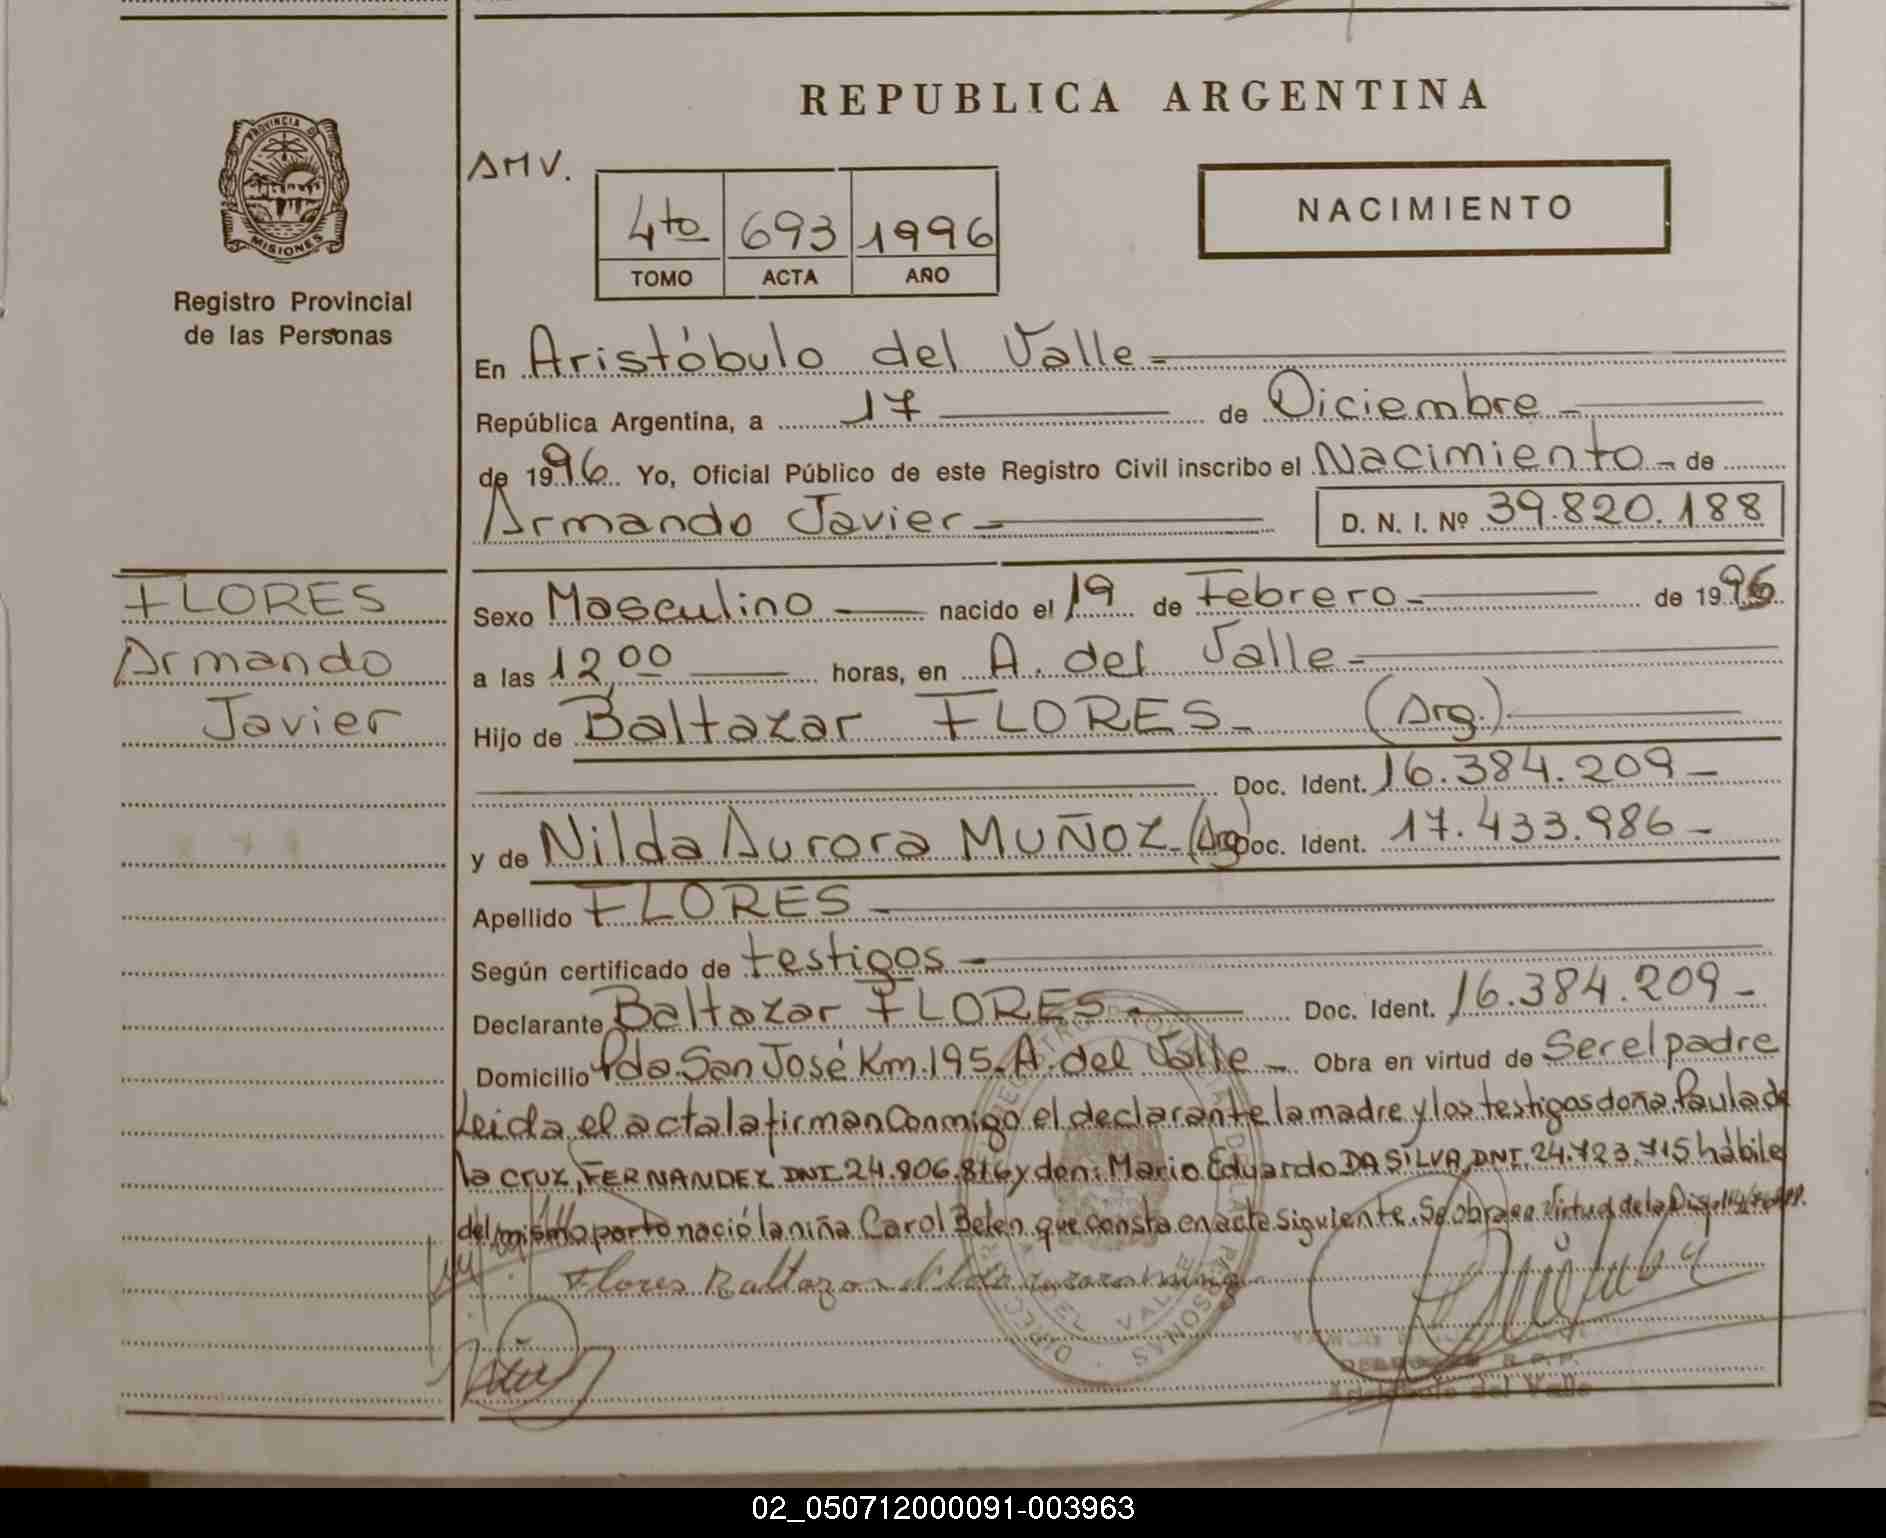 REPUBLICA ARGENTINA
PROVINCIA DE
MISIONES
Registro Provincial
de las Personas
AMV.
4to 693 1996
TOMO ACTA AÑO
NACIMIENTO
En Aristóbulo del Valle
República Argentina, a 17 de Diciembre
de 1996 Yo, Oficial Público de este Registro Civil inscribo el Nacimiento de
Armando Javier D. N. I. Nº 39.820.188
FLORES
Armando
Javier
Sexo Masculino nacido el 19 de Febrero de 1996
a las 12,00 horas, en A. del Valle
Hijo de Baltazar FLORES (Arg.)
Doc. Ident. 16.384.209
y de Nilda Aurora MUÑOZ (Arg) Doc. Ident. 17.433.986
Apellido FLORES
Según certificado de testigos
Declarante Baltazar FLORES Doc. Ident. 16.384.209
Domicilio Pda San José Km.195. A. del Valle Obra en virtud de Ser el padre
Leida el acta la firman Conmigo el declarante la madre y los testigos doña Paula de
la CRUZ, FERNANDEZ DNI 24.806.816 y don: Mario Eduardo DA SILVA, DNI. 24.723.715 hábile
del mismo parto nació la niña Carol Belen que consta en acta siguiente. Se obra en Virtud de la
Flores Baltazar
DEL VALLE
R.P.P.
Aristóbulo del Valle
02_050712000091-003963